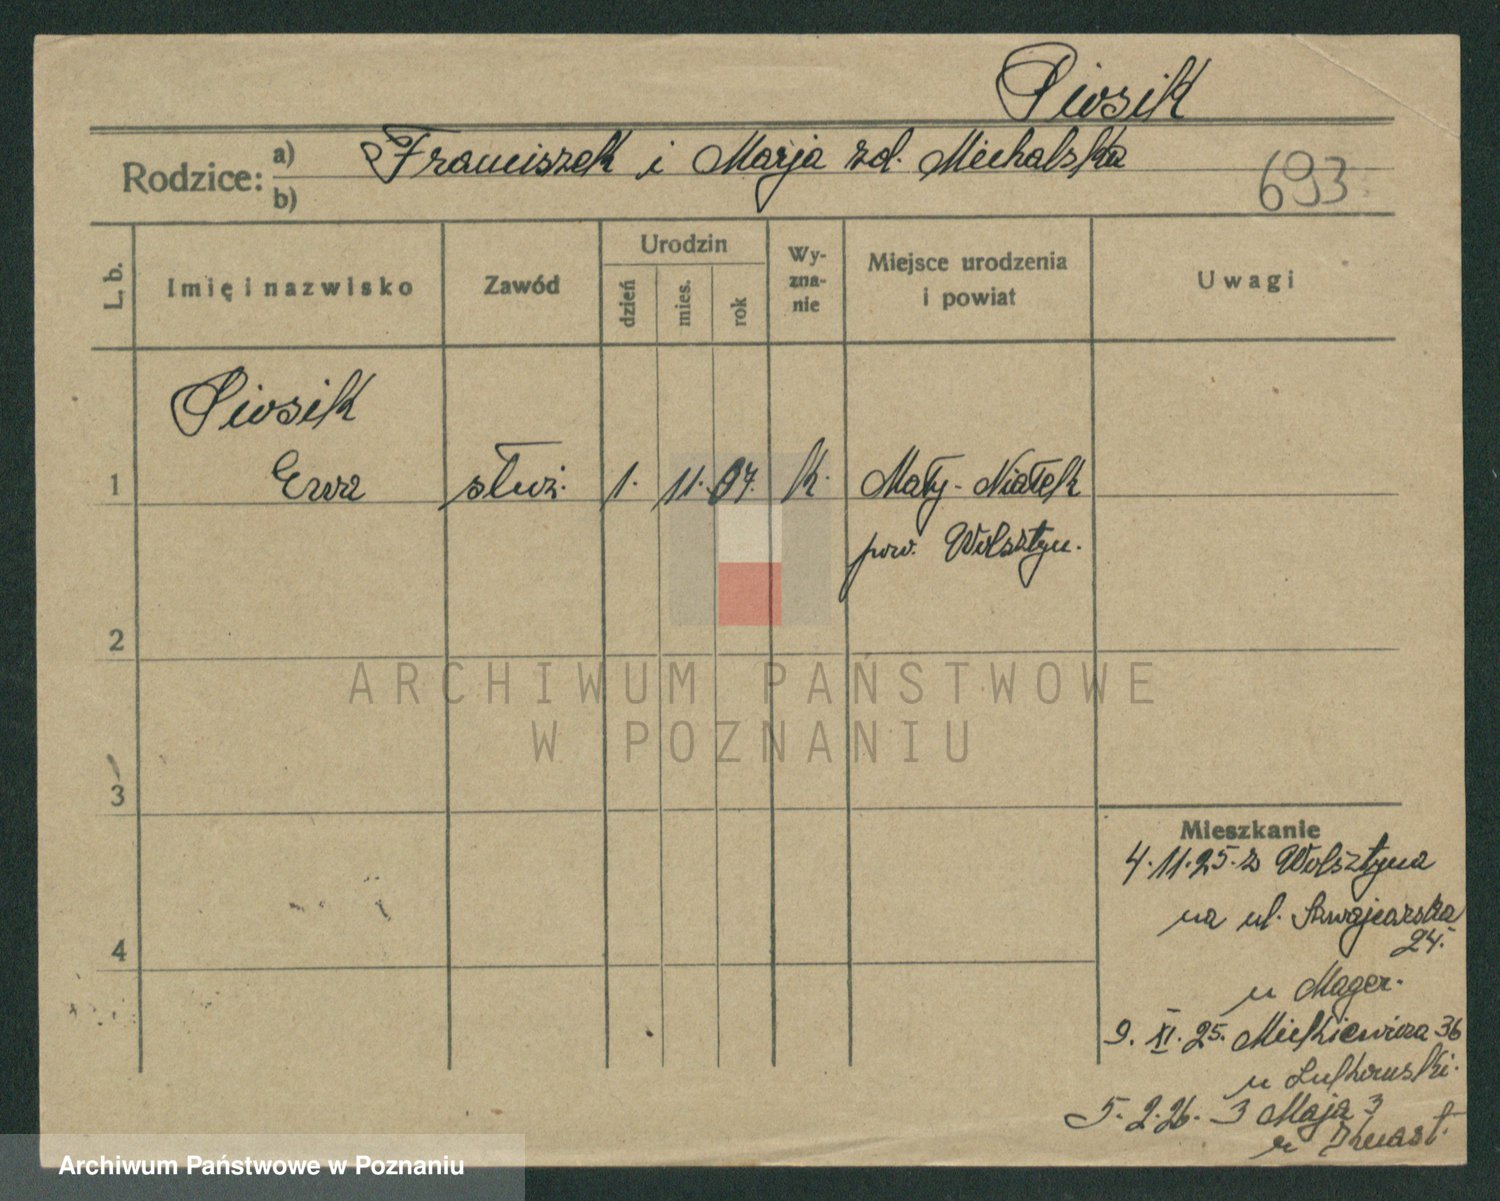 Piosik
Rodzice: a) Franciszek i Marja zd. Michalska
b)
693
L. b.
Imię i nazwisko
Zawód
Urodzin
dzień
mies.
rok
Wy-
zna-
nie
Miejsce urodzenia
i powiat
Uwagi
Piosik
1 Ewa służ. 1. 11. 07. k. Mały-Niałek
pow. Wolsztyn.
2
3
4
ARCHIWUM PAŃSTWOWE
W POZNANIU
Mieszkanie
4.11.25. z Wolsztyna
na ul. Szwajcarska
24.
u Mager.
9. XI. 25. Mickiewicza 36
u
5. 2. 26. 3 Maja 3
u
Archiwum Państwowe w Poznaniu